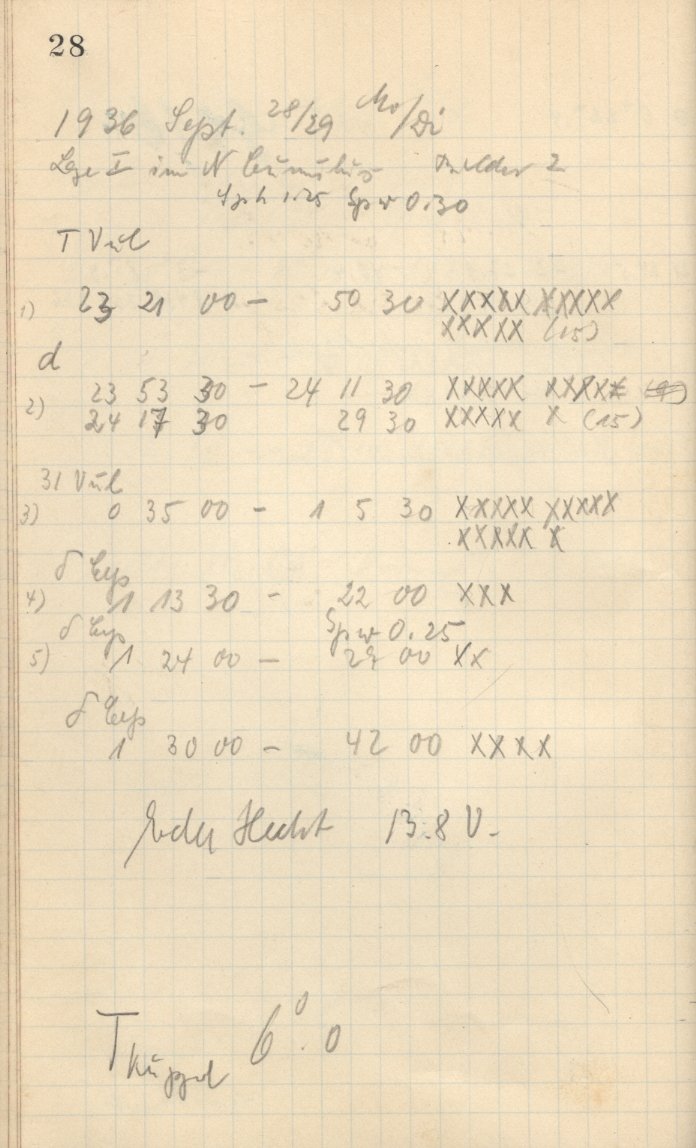 28
1936 Sept. 28/29 Mo/Di
Lage I im N Cumulus 2
Sph 1.25 Spw 0.30
T Vul
1) 23 21 00 – 50 30 XXXXX XXXXX
XXXXX (15)
d
2) 23 53 30 – 24 11 30 XXXXX XXXXX
24 17 30 29 30 XXXXX X (15)
31 Vul
3) 0 35 00 – 1 5 30 XXXXX XXXXX
XXXXX X
δ Cep
4) 1 13 30 – 22 00 XXX
δ Cep Spw 0.25
5) 1 24 00 – 29 00 XX
δ Cep
1 30 00 – 42 00 XXXX
Hecht 13.8 V.
T Kuppel 6°.0